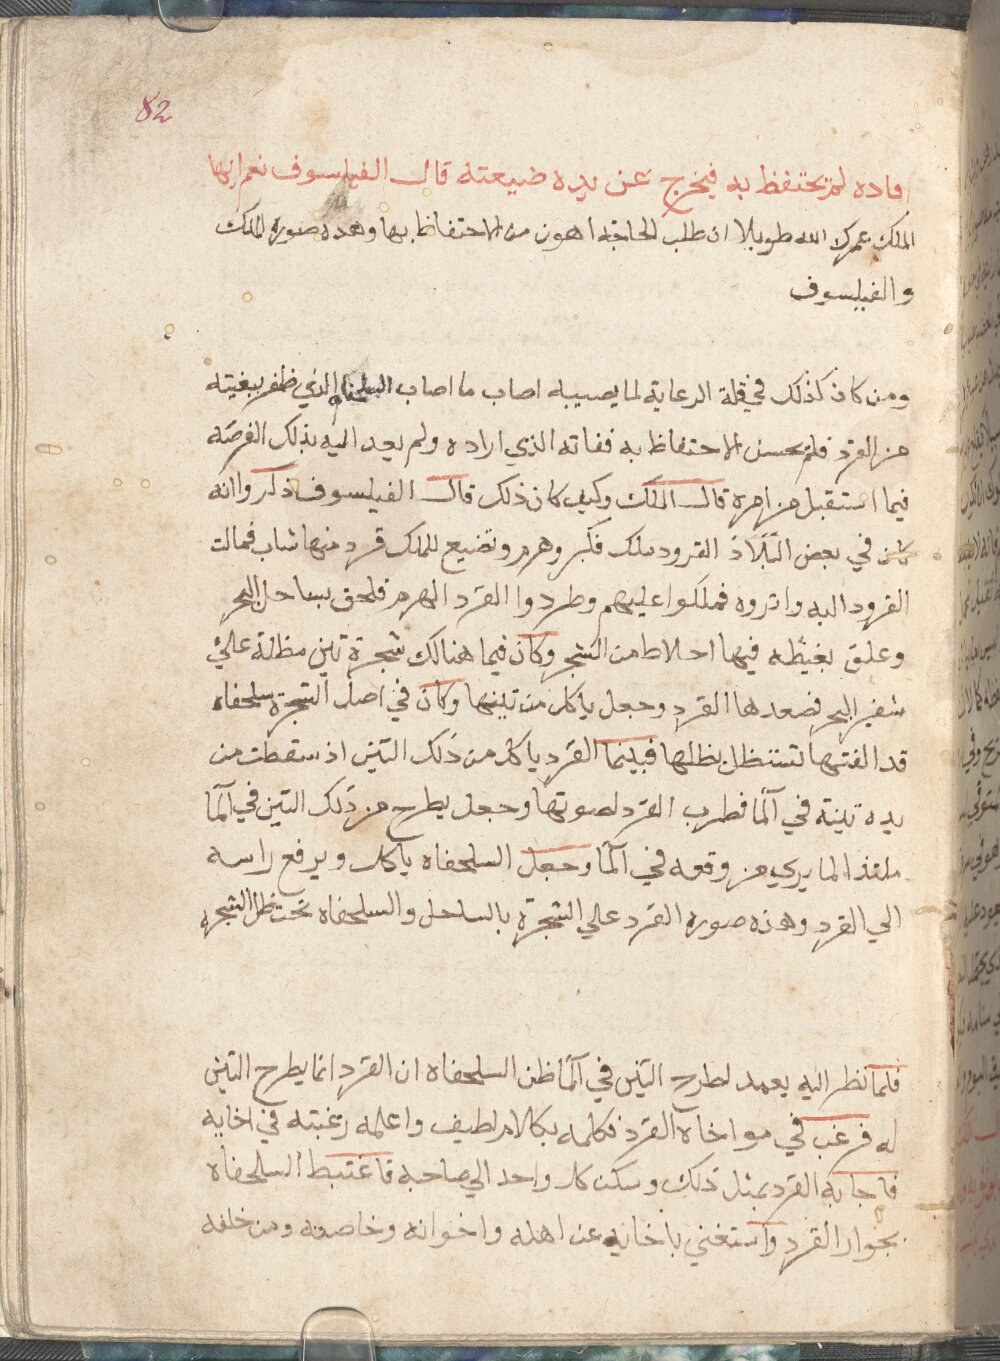 82
افاده لم يحتفظ به فيخرج عن يده ضيعته قال الفيلسوف نعم ايها
الملك عمرك الله طويلا ان طلب الحاجة اهون من الاحتفاظ بها وهذه صورة الملك
والفيلسوف
ومن كان كذلك في قلة الرعاية لما يصيبه اصاب ما اصاب السلحفاه الذي ظفر ببغيته
من القرد فلم يحسن الاحتفاظ به ففاته الذي اراده ولم يعد اليه بذلك الفرصه
فيما استقبل من امره قال الملك وكيف كان ذلك قال الفيلسوف ذكروا انه
كان في بعض البلاد القرود ملك فكبر وهرم وتضيع للملك قرد منها شاب فمالت
القرود اليه واتروه فملكوا عليهم وطردوا القرد الهرم فلحق بساحل البحر
وعلق بغيظه فيها اخلاط من الشجر وكان فيما هنالك شجرة تين مظالة علي
شفير البحر فصعدها القرد وجعل ياكل من تينها وكان في اصل الشجرة سلحفاه
قد الفتها تستظل بظلها فبينما القرد ياكل من ذلك التين اذ سقطت من
يده تينة في الما فطرب القرد لصوتها وجعل يطرح من ذلك التين في الما
ملتذا لما يري من وقعه في الما وجعل السلحفاه ياكل ويرفع راسه
الي القرد وهذه صورة القرد علي الشجرة بالساحل والسلحفاه تحت ظل الشجره
فلما نظر اليه يعمد لطرح التين في الما ظن السلحفاه ان القرد انما يطرح التين
له فرغب في مواخاة القرد فكلمه بكلام لطيف واعلمه رغبته في اخايه
فاجابه القرد بمثل ذلك وسكن كل واحد الي صاحبه فاغتبط السلحفاه
بجوار القرد واستغني باخايه عن اهله واخوانه وخاصته ومن خلفه